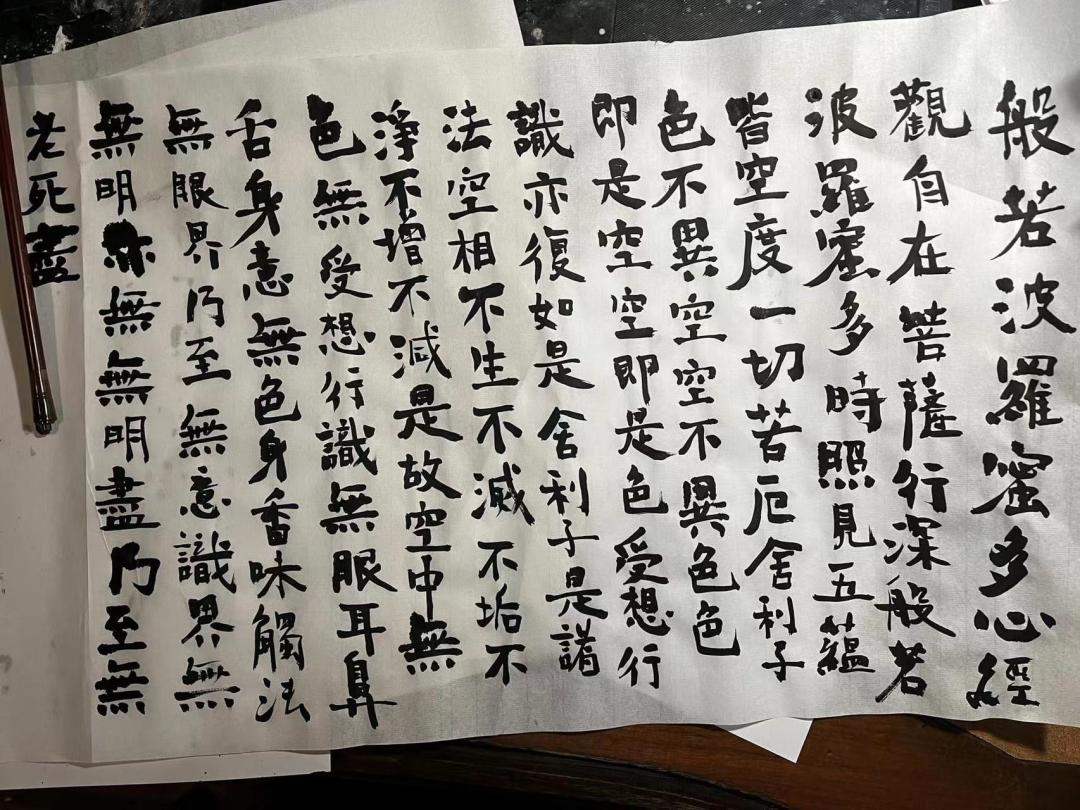 般若波羅蜜多心經
觀自在菩薩行深般若
波羅蜜多時照見五蘊
皆空度一切苦厄舍利子
色不異空空不異色色
即是空空即是色受想行
識亦復如是舍利子是諸
法空相不生不滅不垢不
淨不增不減是故空中無
色無受想行識無眼耳鼻
舌身意無色身香味觸法
無眼界乃至無意識界無
無明亦無無明盡乃至無
老死盡